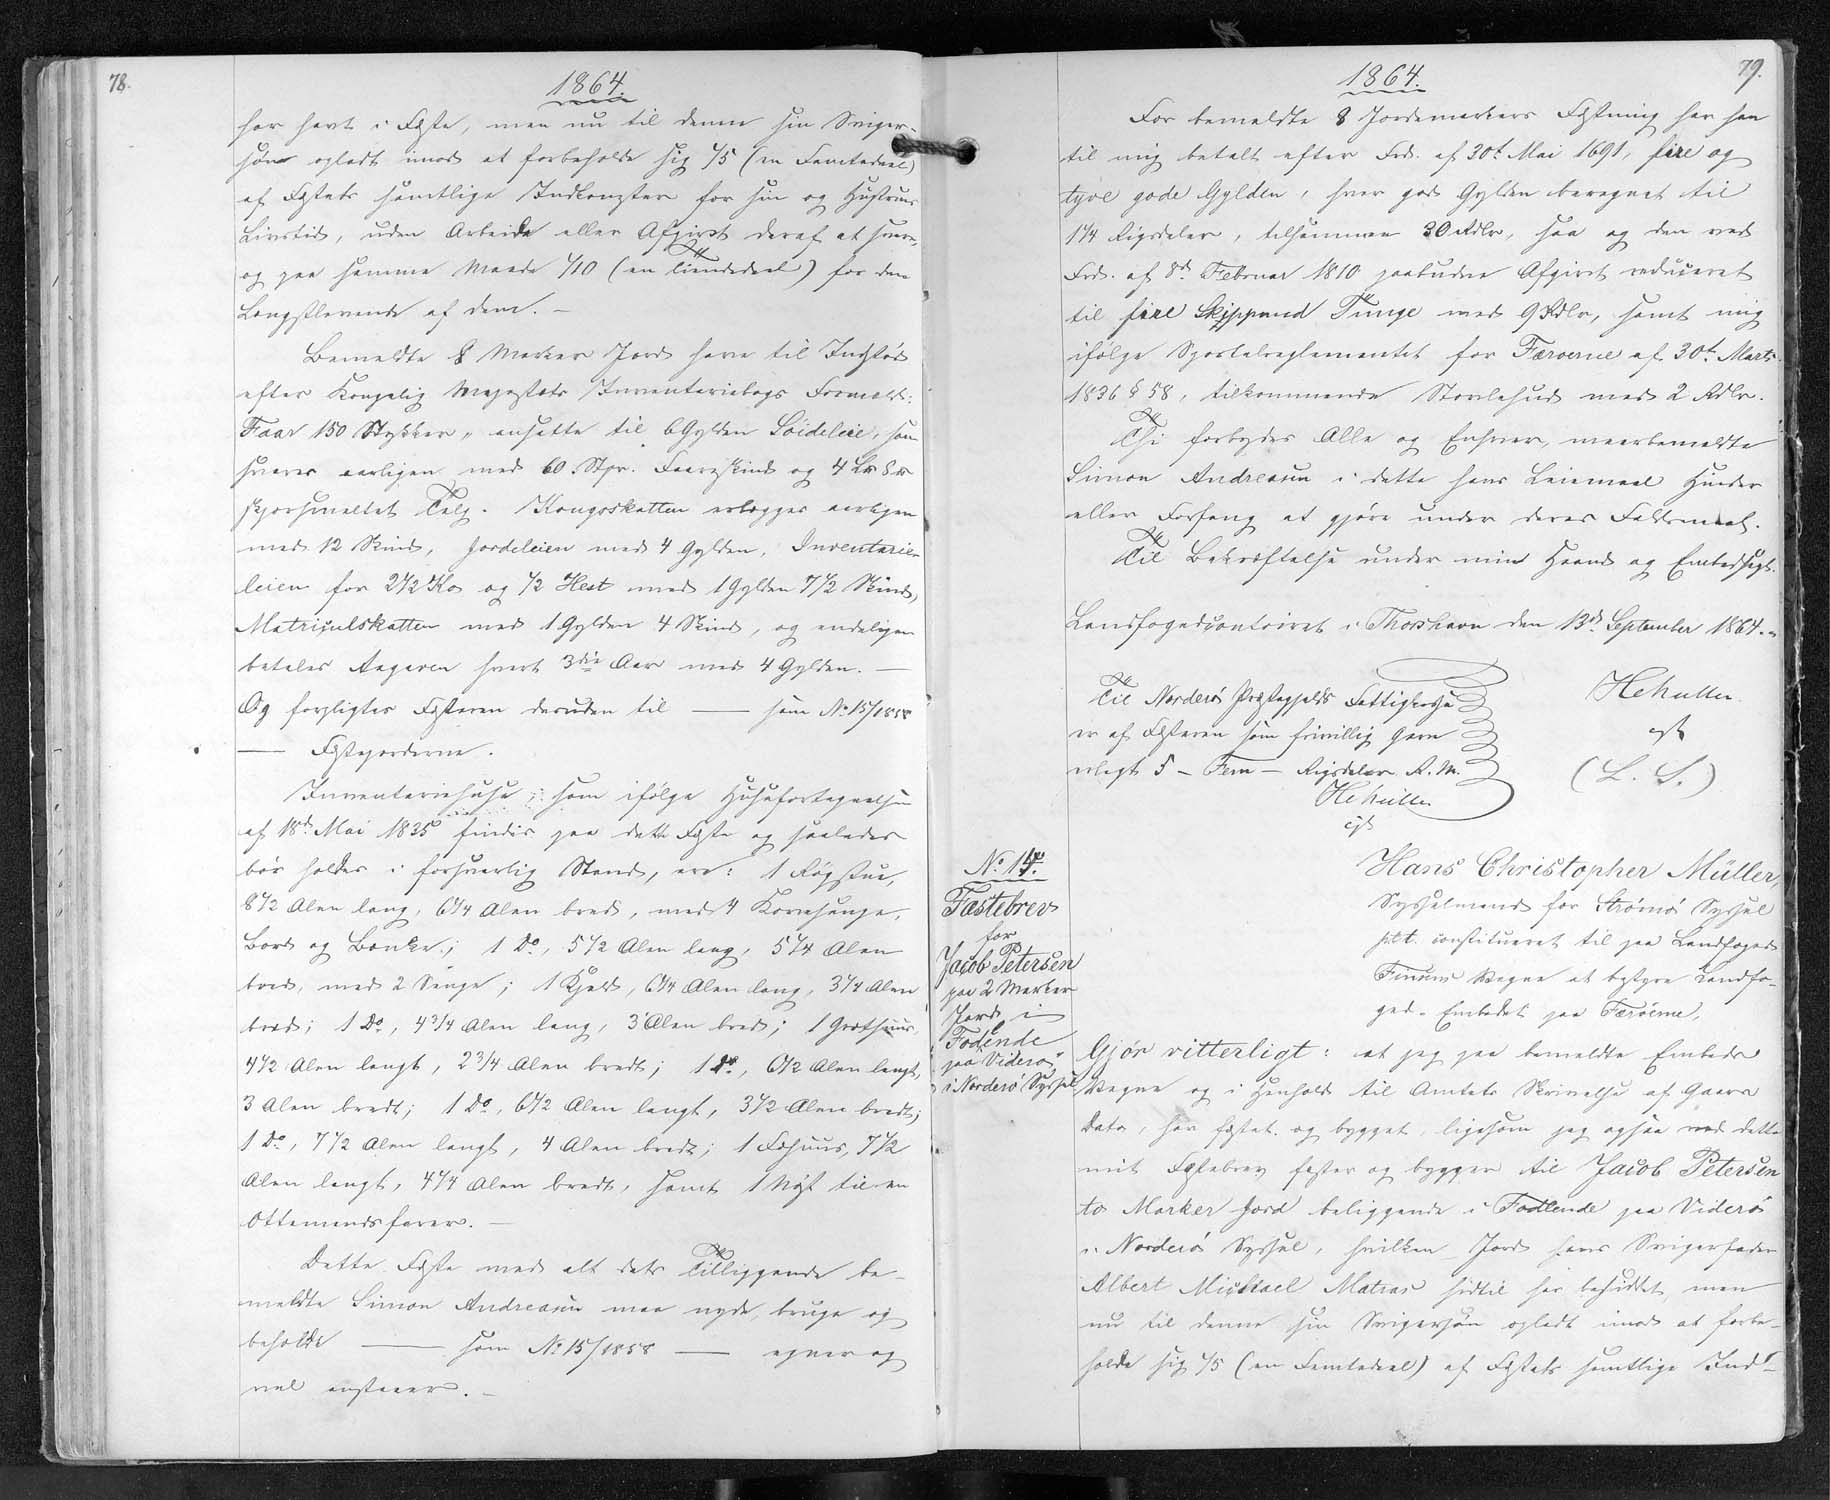 78.
1864.
har havt i Fæste, men nu til denne sin Sviger-
søn opladt imod at forbeholde sig 1/5 (en Femtedeel)
af Fæstets samtlige Indkomster for sin og Hustrues
Livstid, uden Arbeide eller Afgivt deraf at svare,
og paa samme Maade 1/10 (en Tiendedeel) for den
Længstlevende af dem. –
Bemeldte 8 Marker Jord have til Indstød
efter Kongelig Majestæts Inventariebogs Formeld:
Faar 150 Stykker, ansatte til 6 Gylden Söideleie, som
svares aarligen med 60 Stkr. Faareskind og 4 L℔ 8 ℔
skjørsmeltet Talg. Kongsskatten erlægges aarligen
med 12 Skind, Jordeleien med 4 Gylden, Inventarie-
leien for 2 1/2 Ko og 1/2 Hest med 1 Gylden 7 1/2 Skind,
Matriculskatten med 1 Gylden 4 Skind, og endeligen
betales Aagaven hvert 3die Aar med 4 Gylden. –
Og forpligtes Fæsteren desuden til — som No 15/1858
— Fæstegaarderne.
Inventariehuse, som ifølge Huusefortegnelse
af 18de Mai 1835 findes paa dette Fæste og saaledes
bør holdes i forsvarlig Stand, ere: 1 Røgstue,
8 1/2 Alen lang, 6 1/4 Alen bred, med 4 Korresenge,
Bord og Bænke; 1 Do, 5 1/2 Alen lang, 5 1/4 Alen
bred, med 2 Senge; 1 Kjeld, 6 1/4 Alen lang, 3 1/4 Alen
bred; 1 Do, 4 3/4 Alen lang, 3 Alen bred; 1 Grothuus,
4 1/2 Alen langt, 2 3/4 Alen bredt; 1 Do, 6 1/2 Alen langt,
3 Alen bredt; 1 Do, 6 1/2 Alen langt, 3 1/2 Alen bredt;
1 Do, 7 1/2 Alen langt, 4 Alen bredt; 1 Fæhuus, 7 1/2
Alen langt, 4 1/4 Alen bredt, samt 1 Nøst til en
Ottemandsfarer. –
Dette Fæste med alt dets Tilliggende be-
meldte Simon Andreasen maa nyde, bruge og
beholde — som No 15/1858 — egner og
vel anstaaer. –
79.
1864.
For bemeldte 8 Jordemarkers Fæstning har han
til mig betalt efter Frd. af 30te Mai 1691, fire og
tyve gode Gylden, hver god Gylden beregnet til
1 1/4 Rigsdaler, tilsammen 30 Rdlr, saa og den ved
Frd. af 8de Februar 1810 paabudne Afgivt reduceret
til fire Skippund Tunge med 9 Rdlr, samt mig
ifølge Sportelreglementet for Færoerne af 30te Marts
1836 § 58, tilkommende Storlehud med 2 Rdlr.
Thi forbydes Alle og Enhver, meerbemeldte
Simon Andreasen i dette hans Leiemaal Hinder
eller Forfang at gjøre under deres Faldsmaal.
Til Bekræftelse under min Haand og Embedssegl.
Landfogedcontoiret i Thorshavn den 13de September 1864.
Til Norderö Præstegjelds Fattigkasse
er af Fæsteren som frivillig Gave
erlagt 5 – Fem – Rigsdaler R. M.
HCMüller
cst
HCMüller.
cst
(L. S.)
No 14.
Fæstebrev
for
Jacob Petersen
paa 2 Marker
Jord i
Fodlende
paa Viderö,
i Norderö Syssel
Hans Christopher Müller,
Sysselmand for Strømø Syssel
p.t. constitueret til paa Landfoged
Finsens Vegne at bestyre Landfo-
ged-Embedet paa Færöerne,
Gjør vitterligt: at jeg paa bemeldte Embeds
Vegne og i Henhold til Amtets Skrivelse af Gaars
Dato, har fæstet og bygget, ligesom jeg ogsaa ved dette
mit Fæstebrev fæster og bygger til Jacob Petersen
to Marker Jord beliggende i Fodlende paa Viderö
i Norderö Syssel, hvilken Jord hans Svigerfader
Albert Michael Matras hidtil har besiddet, men
nu til denne sin Svigersøn opladt imod at forbe-
holde sig 1/5 (en Femtedeel) af Fæstets samtlige Ind-